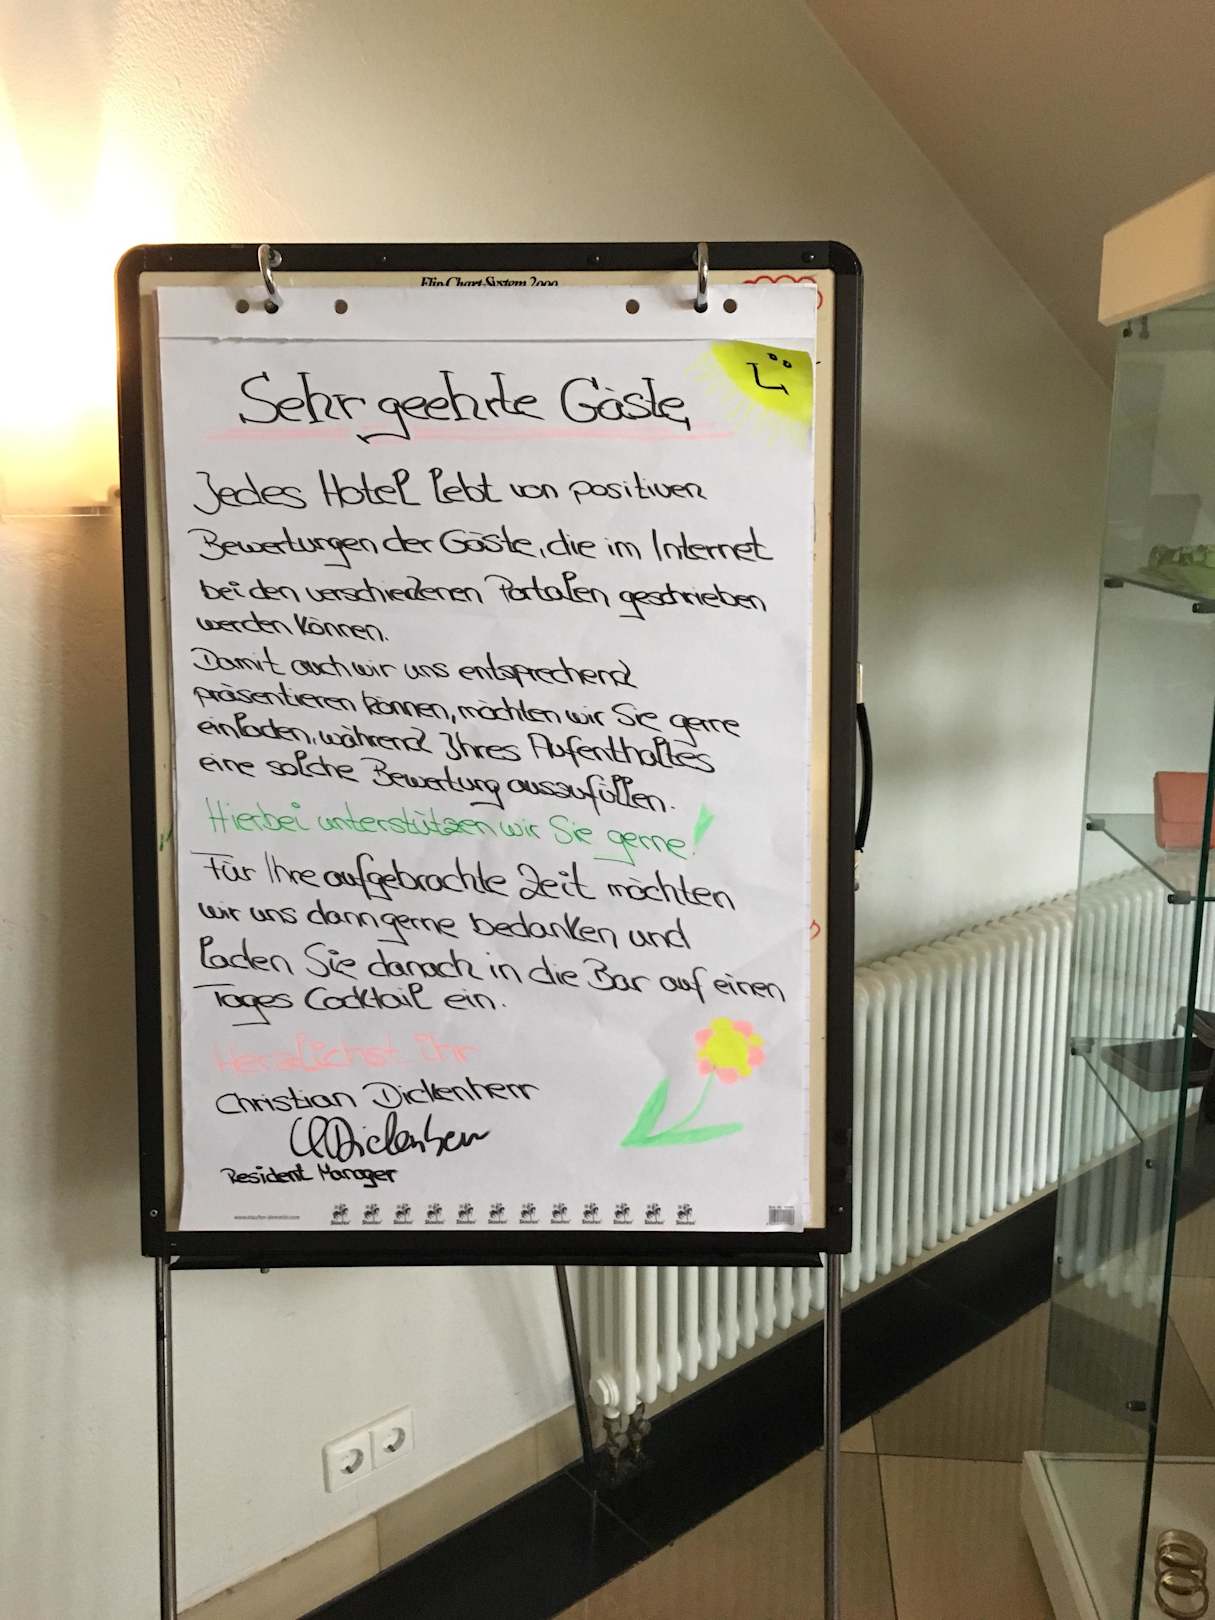 Flip Chart-System 2000
Sehr geehrte Gäste,
Jedes Hotel lebt von positiven
Bewertungen der Gäste, die im Internet
bei den verschiedenen Portalen geschrieben
werden können.
Damit auch wir uns entsprechend
präsentieren können, möchten wir Sie gerne
einladen, während Ihres Aufenthaltes
eine solche Bewertung auszufüllen.
Hierbei unterstützen wir Sie gerne!
Für Ihre aufgebrachte Zeit möchten
wir uns dann gerne bedanken und
laden Sie danach in die Bar auf einen
Tages Cocktail ein.
Herzlichst Ihr
Christian Dickenherr
Resident Manager